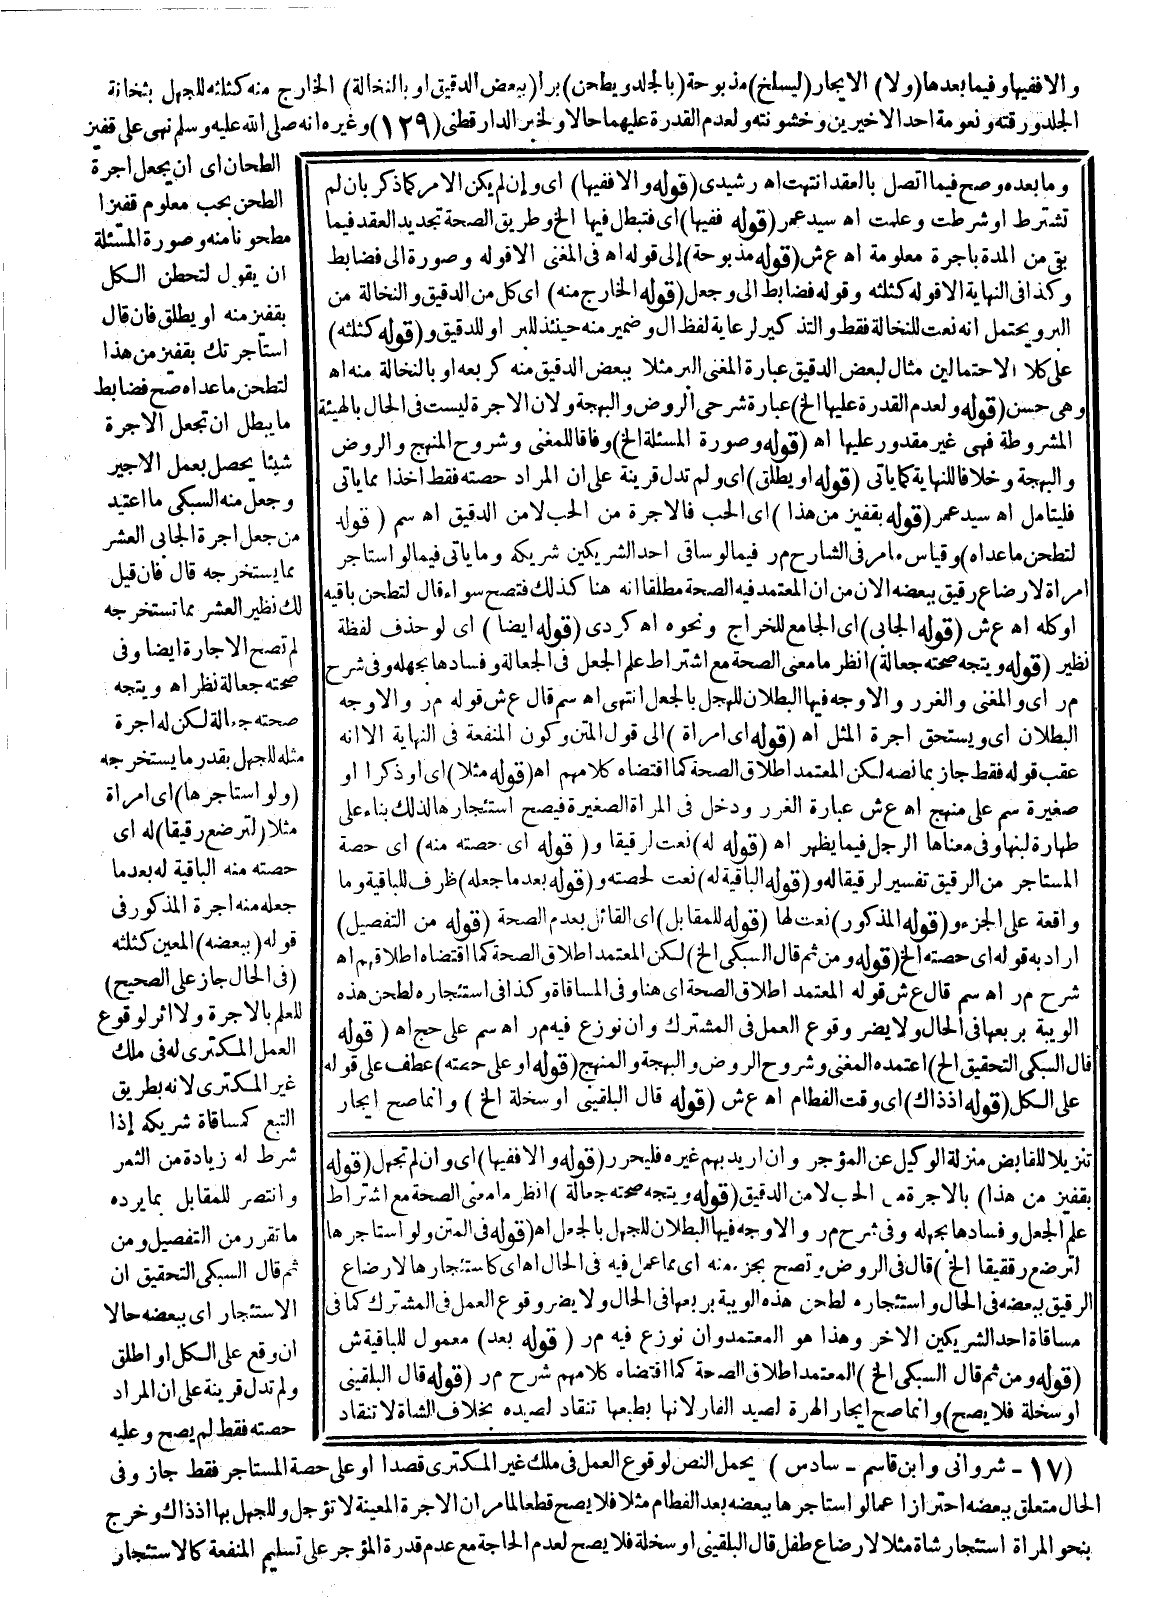 والا ففيها وفيما بعدها (ولا) الايجار (ليسلخ) مذبوحة (بالجلد ويطحن) برا (ببعض الدقيق او بالنخالة) الخارج منه كثلثه للجهل بثخانة
الجلد ورقته ونعومة احد الاخيرين وخشونته ولعدم القدرة عليهما حالا ولخبر الدارقطني (١٢٩) وغيره انه صلى الله عليه وسلم نهى على قفيز
الطحان اى ان يجعل اجرة
الطحن بحب معلوم قفيزا
مطحونا منه وصورة المسئلة
ان يقول لتحطن الكل
بقفيز منه او يطلق فان قال
استأجرتك بقفيز من هذا
لتطحن ما عداه صح فضابط
ما يبطل ان تجعل الاجرة
شيئا يحصل بعمل الاجير
وجعل منه السبكى ما اعتيد
من جعل اجرة الجابى العشر
مما يستخرجه قال فان قيل
لك نظير العشر مما تستخرجه
لم تصح الاجارة ايضا وفى
صحته جعالة نظر اه ويتجه
صحته جعالة لكن له اجرة
مثله للجهل بقدر ما يستخرجه
(ولو استاجرها) اى امراة
مثلا (لترضع رقيقا) له اى
حصته منه الباقية له بعدما
جعله منه اجرة المذكور فى
قوله (ببعضه) المعين كثلثه
(فى الحال جاز على الصحيح)
للعلم بالاجرة ولا اثر لوقوع
العمل المكترى له فى ملك
غير المكترى لانه بطريق
التبع كمساقاة شريكه إذا
شرط له زيادة من الثمر
وانتصر للمقابل بما يرده
ما تقرر من التفصيل ومن
ثم قال السبكى التحقيق ان
الاستئجار اى ببعضه حالا
ان وقع على الكل او اطلق
ولم تدل قرينة على ان المراد
حصته فقط لم يصح وعليه
وما بعده وصح فيما اتصل بالعقد انتهت اه رشيدى (قوله والا ففيها) اى وإن لم يكن الامر كما ذكر بان لم
تشترط او شرطت وعلمت اه سيد عمر (قوله ففيها) اى فتبطل فيها الخ وطريق الصحة تجديد العقد فيما
بقى من المدة باجرة معلومة اه ع ش (قوله مذبوحة) إلى قوله اه فى المغنى الا قوله وصورة الى فضابط
وكذا فى النهاية الا قوله كثلثه وقوله فضابط الى وجعل (قوله الخارج منه) اى كل من الدقيق والنخالة من
البر ويحتمل انه نعت للنخالة فقط والتذكير لرعاية لفظ ال وضمير منه حينئذ للبر او للدقيق و(قوله كثلثه)
على كلا الاحتمالين مثال لبعض الدقيق عبارة المغنى البر مثلا ببعض الدقيق منه كربعه او بالنخالة منه اه
وهى حسن (قوله ولعدم القدرة عليها الخ) عبارة شرحى الروض والبهجة ولان الاجرة ليست فى الحال بالهيئة
المشروطة فهى غير مقدور عليها اه (قوله وصورة المسئلة الخ) وفاقا للمغنى وشروح المنهج والروض
والبهجة وخلافا للنهاية كما ياتى (قوله او يطلق) اى ولم تدل قرينة على ان المراد حصته فقط اخذا مما ياتى
فليتامل اه سيد عمر (قوله بقفيز من هذا) اى الحب فالاجرة من الحب لا من الدقيق اه سم (قوله
لتطحن ما عداه) وقياس ما مر فى الشارح م ر فيما لو ساقى احد الشريكين شريكه وما ياتى فيما لو استاجر
امراة لارضاع رقيق ببعضه الان من ان المعتمد فيه الصحة مطلقا انه هنا كذلك فتصح سواء قال لتطحن باقيه
او كله اه ع ش (قوله الجابى) اى الجامع للخراج ونحوه اه كردى (قوله ايضا) اى لو حذف لفظة
نظير (قوله ويتجه صحته جعالة) انظر ما معنى الصحة مع اشتراط علم الجعل فى الجعالة وفسادها بجهله وفى شرح
م ر اى والمغنى والغرر والاوجه فيها البطلان للهجل بالجعل انتهى اه سم قال ع ش قوله م ر والاوجه
البطلان اى ويستحق اجرة المثل اه (قوله اى امراة) الى قول المتن وكون المنفعة فى النهاية الا انه
عقب قوله فقط جاز بما نصه لكن المعتمد اطلاق الصحة كما اقتضاه كلامهم اه (قوله مثلا) اى او ذكرا او
صغيرة سم على منهج اه ع ش عبارة الغرر ودخل فى المراة الصغيرة فيصح استئجارها لذلك بناء على
طهارة لبنها وفى معناها الرجل فيما يظهر اه (قوله له) نعت لرقيقا و(قوله اى حصته منه) اى حصة
المستاجر من الرقيق تفسير لرقيقا له و(قوله الباقية له) نعت لحصته و(قوله بعد ما جعله) ظرف للباقية وما
واقعة على الجزء و(قوله المذكور) نعت لها (قوله للمقابل) اى القائل بعدم الصحة (قوله من التفصيل)
اراد به قوله اى حصته الخ (قوله ومن ثم قال السبكى الخ) لكن المعتمد اطلاق الصحة كما اقتضاه اطلاقهم اه
شرح م ر اه سم قال ع ش قوله المعتمد اطلاق الصحة اى هنا وفى المساقاة وكذا فى استئجاره لطحن هذه
الويبة بربعها فى الحال ولا يضر وقوع العمل فى المشترك وان نوزع فيه م ر اه سم على حج اه (قوله
قال السبكى التحقيق الخ) اعتمده المغنى وشروح الروض والبهجة والمنهج (قوله او على حصته) عطف على قوله
على الكل (قوله اذذاك) اى وقت الفطام اه ع ش (قوله قال البلقينى او سخلة الخ) وانما صح ايجار
تنزيلا للقابض منزلة الوكيل عن المؤجر وان اريد بهم غيره فليحرر (قوله والا ففيها) اى وان لم تجهل (قوله
بقفيز من هذا) بالاجرة من الحب لا من الدقيق (قوله ويتجه صحته جعالة) انظر ما معنى الصحة مع اشتراط
علم الجعل وفسادها بجهله وفى شرح م ر والاوجه فيها البطلان للجهل بالجعل اه (قوله فى المتن ولو استاجرها
لترضع رقيقا الخ) قال فى الروض وتصح بجزء منه اى مما عمل فيه فى الحال اه اى كاستئجارها لارضاع
الرقيق ببعضه فى الحال واستئجاره لطحن هذه الويبة بربعها فى الحال ولا يضر وقوع العمل فى المشترك كما فى
مساقاة احد الشريكين الاخر وهذا هو المعتمد وان نوزع فيه م ر (قوله بعد) معمول للباقية ش
(قوله ومن ثم قال السبكى الخ) المعتمد اطلاق الصحة كما اقتضاه كلامهم شرح م ر (قوله قال البلقينى
او سخلة فلا يصح) وانما صح ايجار الهرة لصيد الفار لانها بطبعها تنقاد لصيده بخلاف الشاة لا تنقاد
(١٧ – شروانى وابن قاسم – سادس) يحمل النص لوقوع العمل فى ملك غير المكترى قصدا او على حصة المستاجر فقط جاز وفى
الحال متعلق ببعضه احترازا عما لو استاجرها ببعضه بعد الفطام مثلا فلا يصح قطعا لما مر ان الاجرة المعينة لا تؤجل وللجهل بها اذ ذاك وخرج
بنحو المراة استئجار شاة مثلا لارضاع طفل قال البلقينى او سخلة فلا يصح لعدم الحاجة مع عدم قدرة المؤجر على تسليم المنفعة كالاستئجار